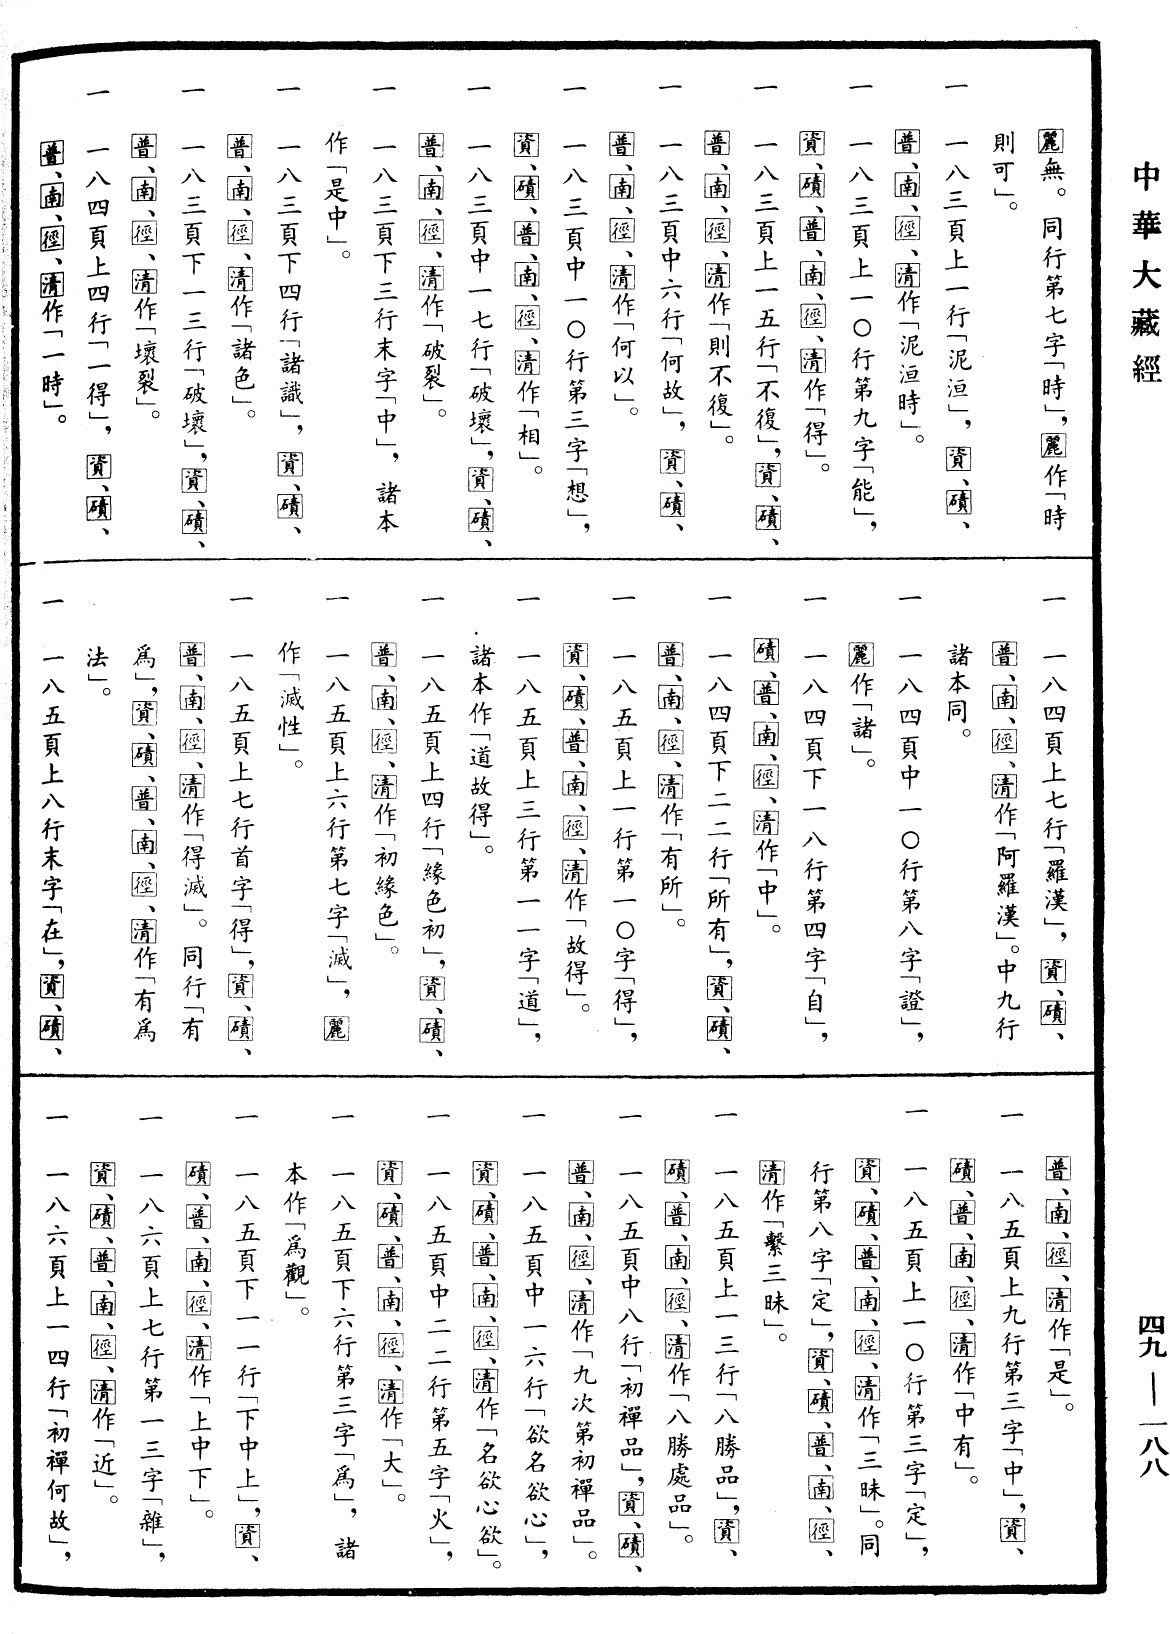 中華大藏經
四九—一八八
麗無。同行第七字「時」，麗作「時
則可」。
一　一八三頁上一行「泥洹」，資、磧、
普、南、徑、清作「泥洹時」。
一　一八三頁上一〇行第九字「能」，
資、磧、普、南、徑、清作「得」。
一　一八三頁上一五行「不復」，資、磧、
普、南、徑、清作「則不復」。
一　一八三頁中六行「何故」，資、磧、
普、南、徑、清作「何以」。
一　一八三頁中一〇行第三字「想」，
資、磧、普、南、徑、清作「相」。
一　一八三頁中一七行「破壞」，資、磧、
普、南、徑、清作「破裂」。
一　一八三頁下三行末字「中」，諸本
作「是中」。
一　一八三頁下四行「諸識」，資、磧、
普、南、徑、清作「諸色」。
一　一八三頁下一三行「破壞」，資、磧、
普、南、徑、清作「壞裂」。
一　一八四頁上四行「一得」，資、磧、
普、南、徑、清作「一時」。
一　一八四頁上七行「羅漢」，資、磧、
普、南、徑、清作「阿羅漢」。中九行
諸本同。
一　一八四頁中一〇行第八字「證」，
麗作「諸」。
一　一八四頁下一八行第四字「自」，
磧、普、南、徑、清作「中」。
一　一八四頁下二二行「所有」，資、磧、
普、南、徑、清作「有所」。
一　一八五頁上一行第一〇字「得」，
資、磧、普、南、徑、清作「故得」。
一　一八五頁上三行第一一字「道」，
諸本作「道故得」。
一　一八五頁上四行「緣色初」，資、磧、
普、南、徑、清作「初緣色」。
一　一八五頁上六行第七字「滅」，麗
作「滅性」。
一　一八五頁上七行首字「得」，資、磧、
普、南、徑、清作「得滅」。同行「有
爲」，資、磧、普、南、徑、清作「有爲
法」。
一　一八五頁上八行末字「在」，資、磧、
普、南、徑、清作「是」。
一　一八五頁上九行第三字「中」，資、
磧、普、南、徑、清作「中有」。
一　一八五頁上一〇行第三字「定」，
資、磧、普、南、徑、清作「三昧」。同
行第八字「定」，資、磧、普、南、徑、
清作「繫三昧」。
一　一八五頁上一三行「八勝品」，資、
磧、普、南、徑、清作「八勝處品」。
一　一八五頁中八行「初禪品」，資、磧、
普、南、徑、清作「九次第初禪品」。
一　一八五頁中一六行「欲名欲心」，
資、磧、普、南、徑、清作「名欲心欲」。
一　一八五頁中二二行第五字「火」，
資、磧、普、南、徑、清作「大」。
一　一八五頁下六行第三字「爲」，諸
本作「爲觀」。
一　一八五頁下一一行「下中上」，資、
磧、普、南、徑、清作「上中下」。
一　一八六頁上七行第一三字「雜」，
資、磧、普、南、徑、清作「近」。
一　一八六頁上一四行「初禪何故」，